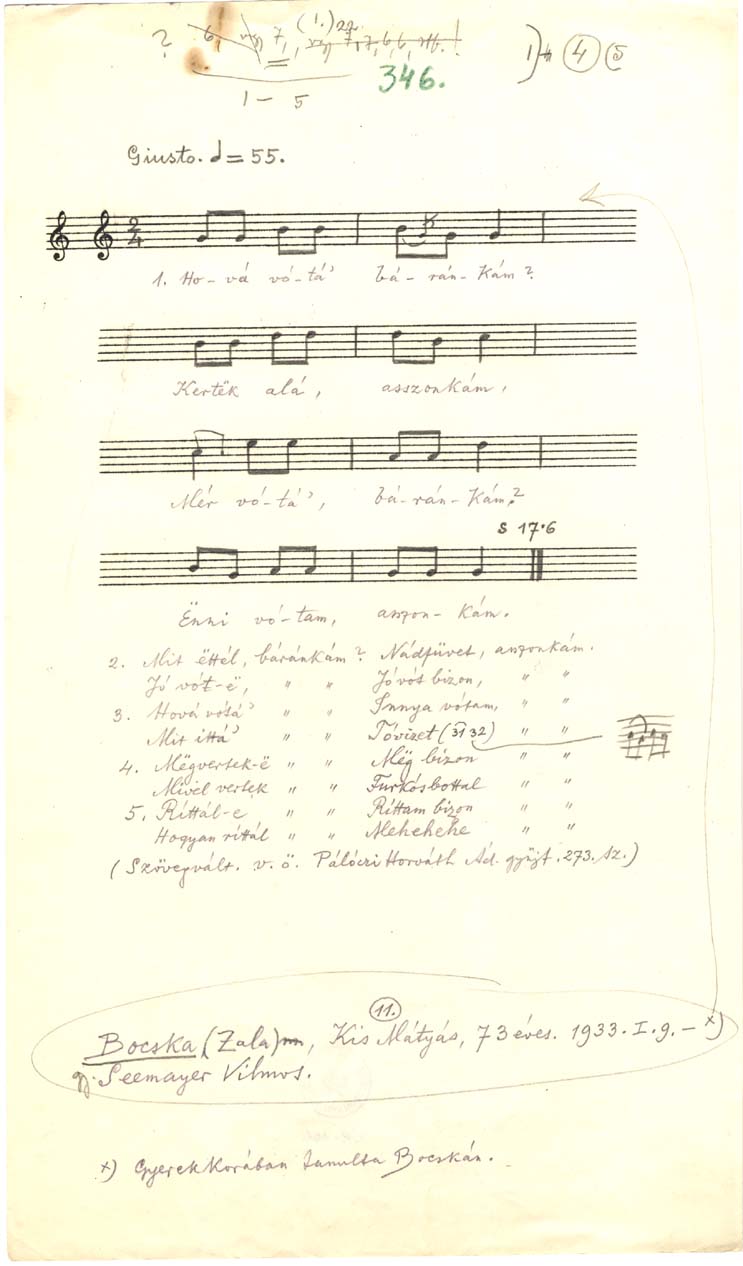 ? 6, 7, (1.) 22
7, 7, 6, 6, stb. !
1) 4 5
1 – 5
346.
Giusto. = 55.
2 4
1. Ho- vá vó- tá' bá- rán- kám?
Kertëk alá, asszonkám,
Mér vó- tá', bá- rán- kám?
S 17·6
Ënni vó- tam, asszon- kám.
2. Mit ëttél, báránkám? Nádfüvet, asszonkám.
Jó vót-ë, " " Jó vót bizon, " "
3. Hová vótá' " " Innya vótam, " "
Mit ittá' " " Tóvizet (31 32) " "
4. Mëgvertek-ë " " Mëg bizon " "
Mivel vertek " " Furkósbottal " "
5. Ríttál-e " " Ríttam bizon " "
Hogyan ríttál " " Mehehehe " "
(Szövegvált. v. ö. Pálóczi Horváth Ád. gyűjt. 273. sz.)
11.
Bocska (Zala), Kis Mátyás, 73 éves. 1933. I. 9. – x)
gy. Seemayer Vilmos.
x) Gyerekkorában tanulta Bocskán.